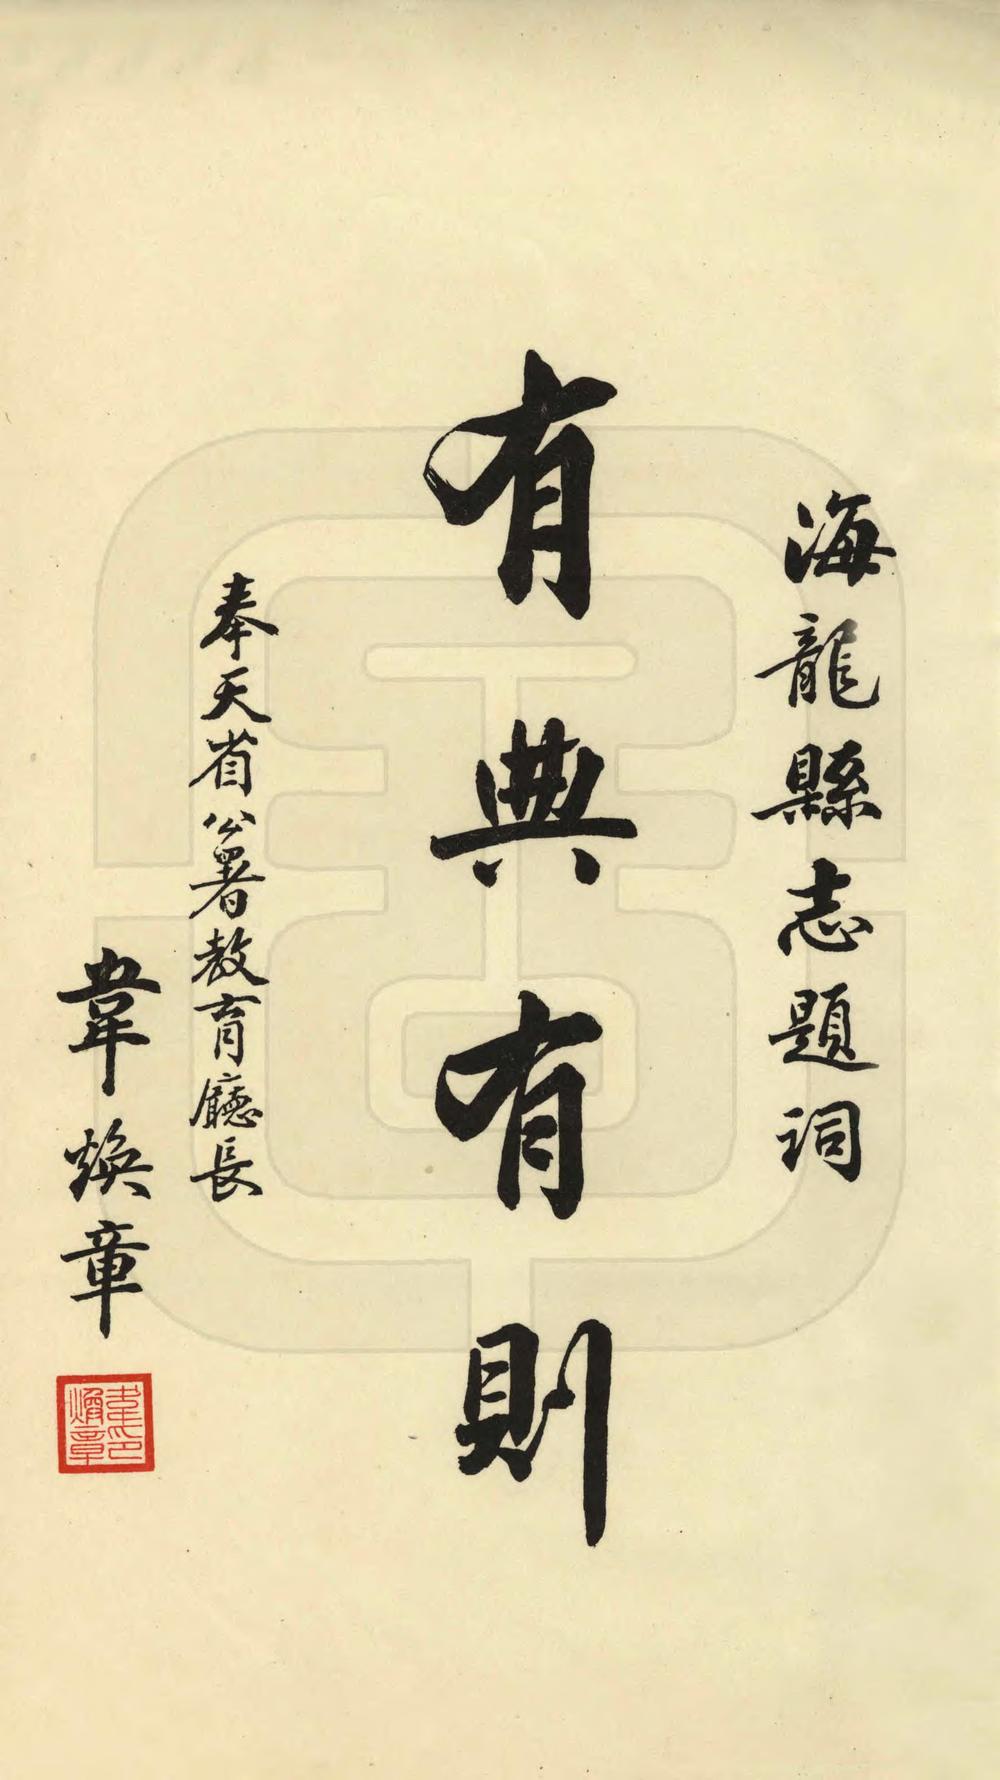 海龍縣志題詞
有典有則
奉天省公署教育廳長
韋煥章
韋煥章印